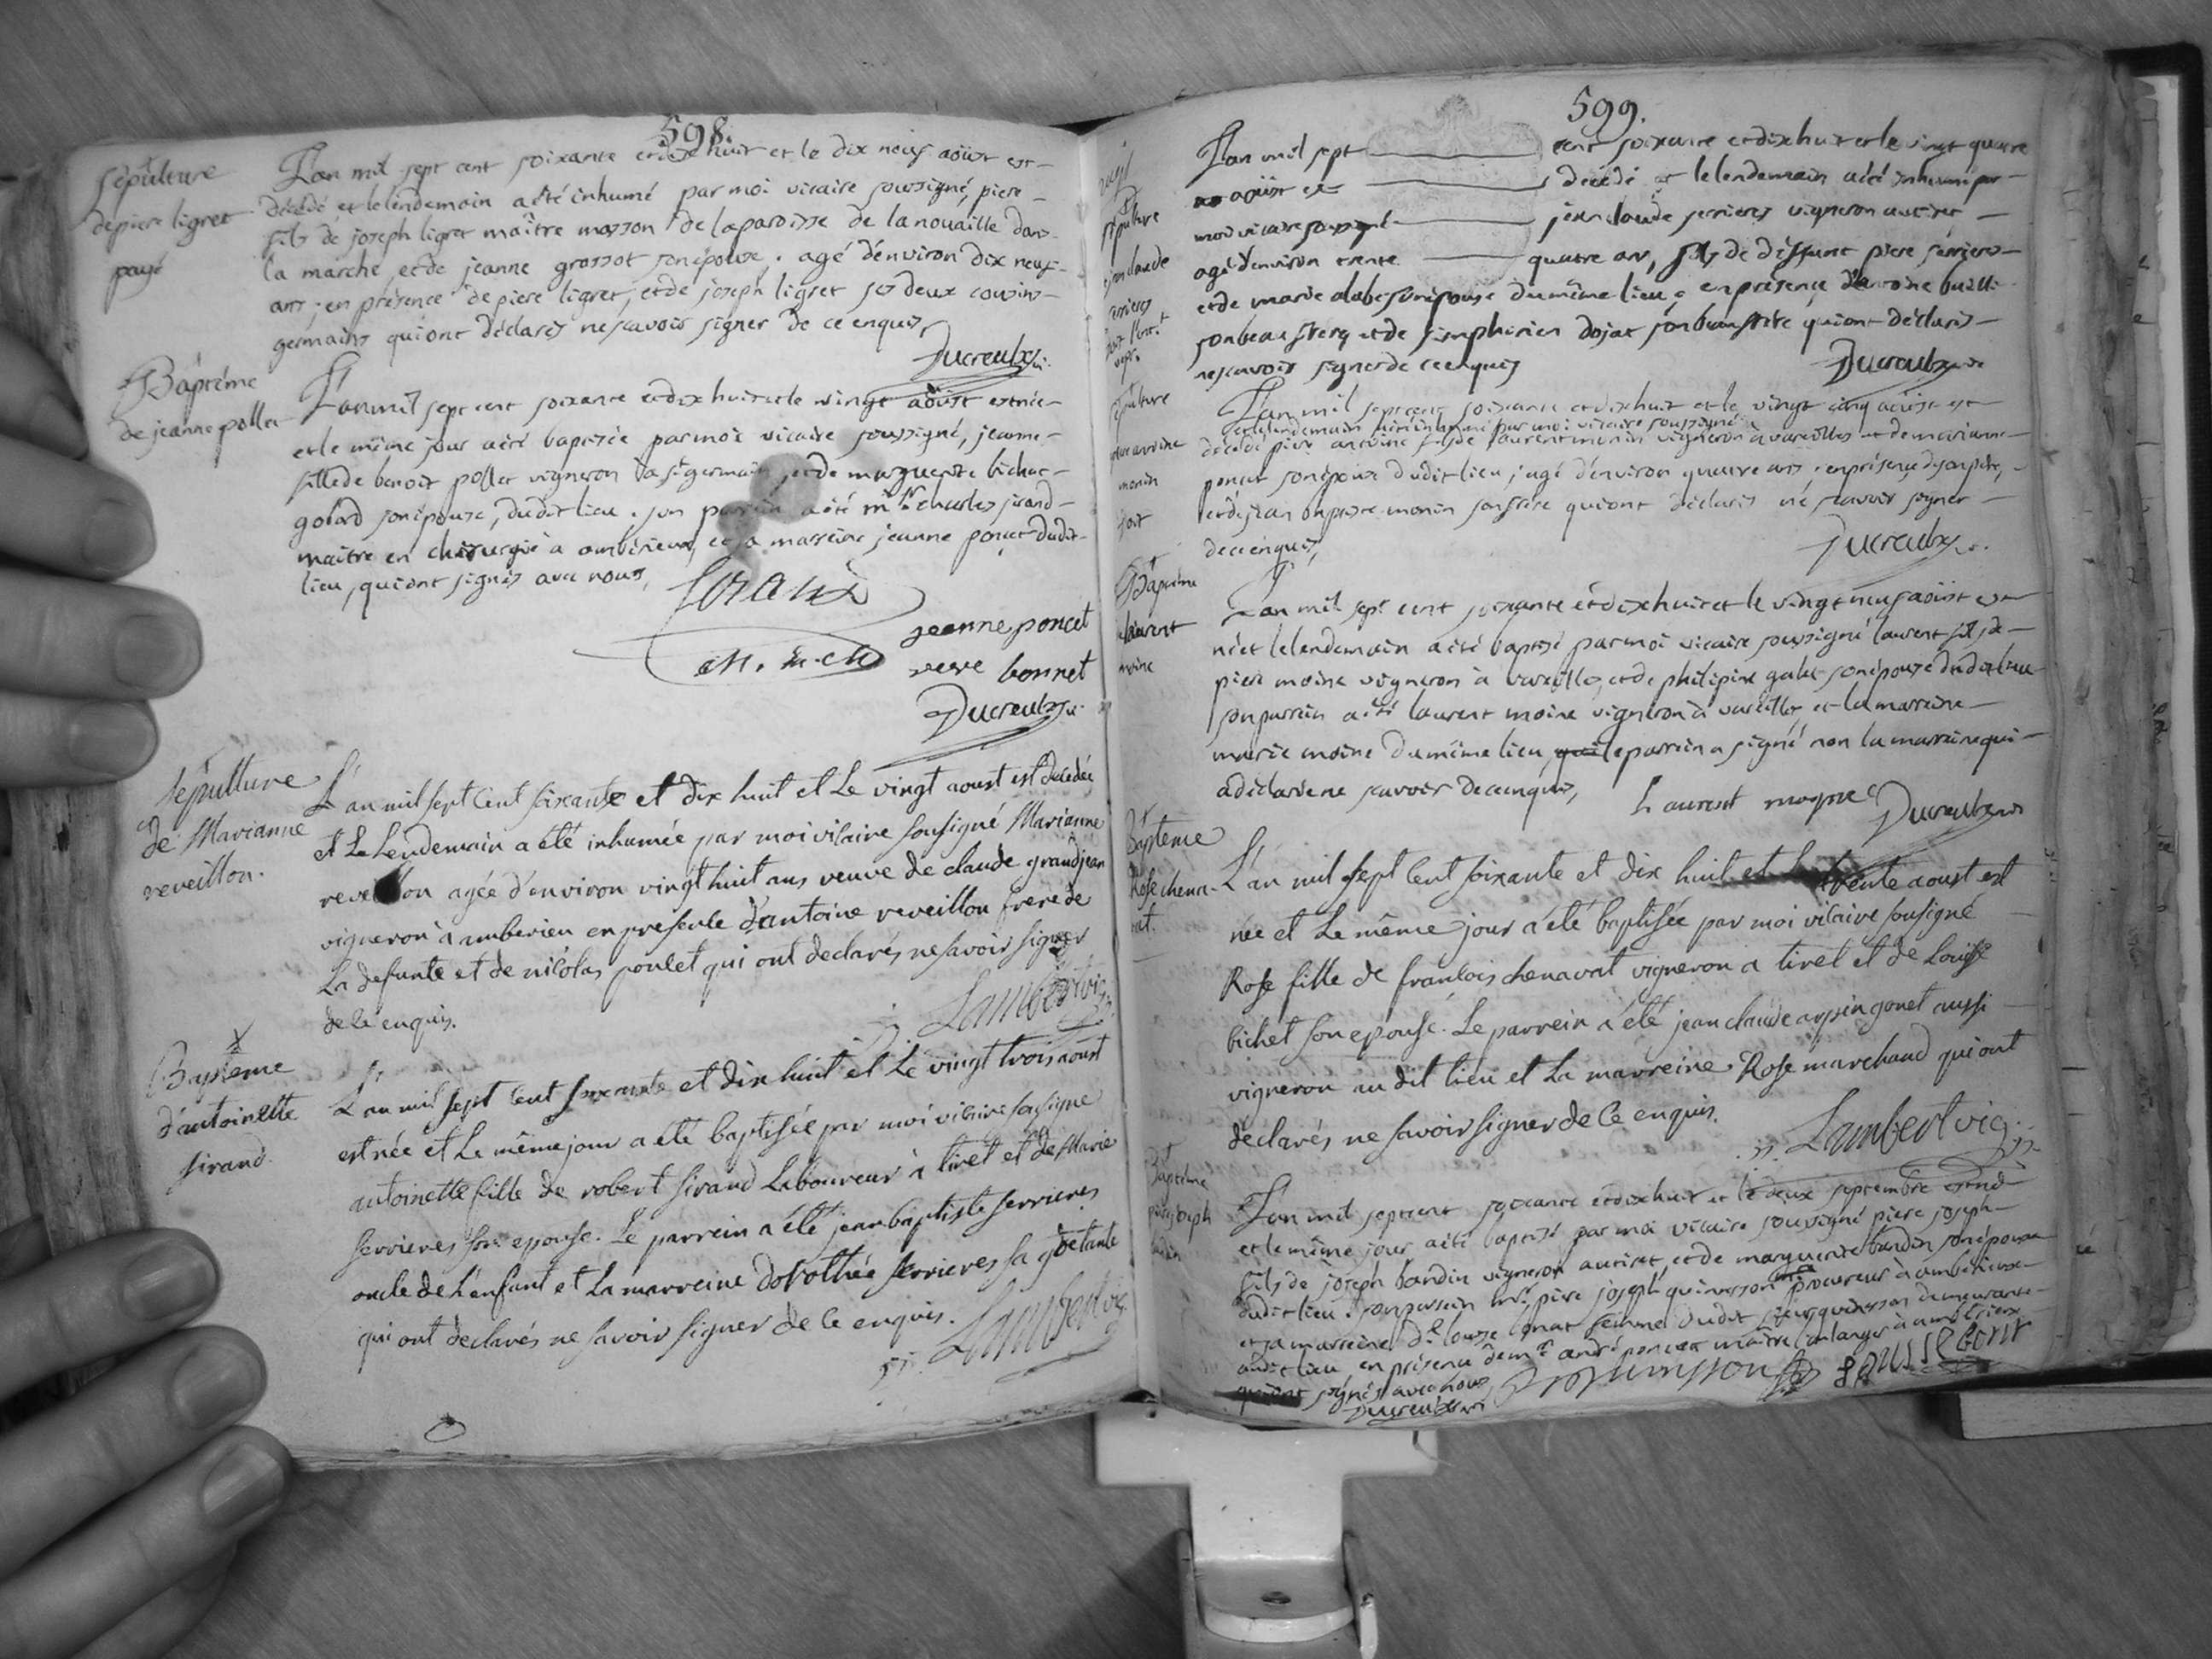 598.
Sépulture
de piere ligret
payé
L'an mil sept cent soixante et dix huit et le dix neuf aôust est
décédé et le lendemain a été inhumé par moi vicaire soussigné, piere
fils de joseph ligret maître masson de la paroisse de la nouaille dans
la marche, et de jeanne grossot son épouse. agé d'environ dix neuf
ans ; en présence de piere ligret, et de joseph ligret ses deux cousins
germains qui ont déclarés ne scavoir signer de ce enquis,
Ducreulx vi.
Bâptême
de jeanne pollet
L'an mil sept cent soixante et dix huit et le vingt aôust est née
et le même jour a été baptisée par moi vicaire soussigné, jeanne
fille de benoit pollet vigneron a st germain, et de marguerite bichat
goard son épouse, dudit lieu. son parrain a été mr. charles sirand
maitre en chirurgie à ambérieux, et sa marreine jeanne poncet dudit
lieu, qui ont signés avec nous,
Sirand
m. en ch
jeanne poncet
veve bonnet
Ducreulx vi.
Sepulture
de Marianne
reveillon.
L'an mil sept cent soixante et dix huit et Le vingt aoust est decedée
et Le Lendemain a été inhumée par moi vicaire sousigné Marianne
reveillon agée d'environ vingt huit ans veuve de claude grandjean
vigneron à amberieu en presence d'antoine reveillon frere de
La defunte et de nicolas poulet qui ont declarés ne savoir signer
de ce enquis.
Lambert vic.
Baptême
d'antoinette
sirand.
L'an mil sept cent soixante et dix huit et Le vingt trois aoust
est née et Le même jour a été baptisée par moi vicaire sousigné
antoinette fille de robert sirand Laboureur à tiret et de Marie
serrieres son epouse. Le parrein a été jean baptiste serrieres
oncle de L'enfant et La marreine dorothée serrieres sa gde tante
qui ont declarés ne savoir signer de ce enquis.
Lambert vic.
599.
sépulture
jean claude
serrieres
L'an mil sept cent soixante et dix huit et le vingt quatre
aôust est décédé et le lendemain a été inhumé par
moi vicaire soussigné jean claude serrieres vigneron au tiret
agé d'environ trente quatre ans, fils de déffunt piere serrieres
et de marie dabe son épouse du même lieu, en présence d'antoine
son beau frere, et de simphorien dojat son beau frere qui ont déclarés
ne scavoir signer de ce enquis
Ducreulx vi
sépulture
piere antoine
monin
L'an mil sept cent soixante et dix huit et le vingt cinq aôust est
et le lendemain a été inhumé par moi vicaire soussigné
décédé piere antoine fils de laurent monin vigneron a vareilles et de marianne
poncet son épouse dudit lieu ; agé d'environ quatre ans ; en présence de son père,
et de jean baptiste monin son frere qui ont déclarés ne scavoir signer
de ce enquis,
Ducreulx vi.
Bâptême
laurent
moine
L'an mil sept cent soixante et dix huit et le vingt neuf aôust est
né et le lendemain a été baptisé par moi vicaire soussigné laurent fils de
piere moine vigneron à vareilles, et de philipine galet son épouse dudit lieu
son parrain a été laurent moine vigneron à vareilles, et la marraine
marie moine du même lieu, qui le parrain a signé non la marraine qui
a déclaré ne scavoir de ce enquis,
Laurent moyne
Ducreulx vi
Baptême
Rose chena-
vat.
L'an mil sept cent soixante et dix huit et Le trente aoust est
née et Le même jour a été baptisée par moi vicaire sousigné
Rose fille de francois chenavat vigneron a tiret et de Louise
bichet son epouse. Le parrein a été jean claude arpin gonet aussi
vigneron au dit lieu et La marreine Rose marchand qui ont
declarés ne savoir signer de ce enquis.
Lambert vic.
Bâptême
piere joseph
bardin
L'an mil sept cent soixante et dix huit et le deux septembre est né
et le même jour a été baptisé par moi vicaire soussigné piere joseph
fils de joseph bardin vigneron au tiret, et de marguerite bardin son épouse
dudit lieu. son parrain mr. piere joseph quinsson procureur à ambérieux
et sa marreine de. louise femme dudit sieur quinsson demeurante
audit lieu en présence de mr. andré poncet maître boulanger à ambérieux
qui ont signés avec nous,
Ducreulx vi